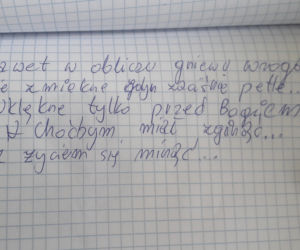 awet w obliczu gniewu wrog
e zmięknę gdyn zaciśnie pętle..
klęknę tylko przed Bogiem
Choćbym miał zginąć...
z życiem się minąć...